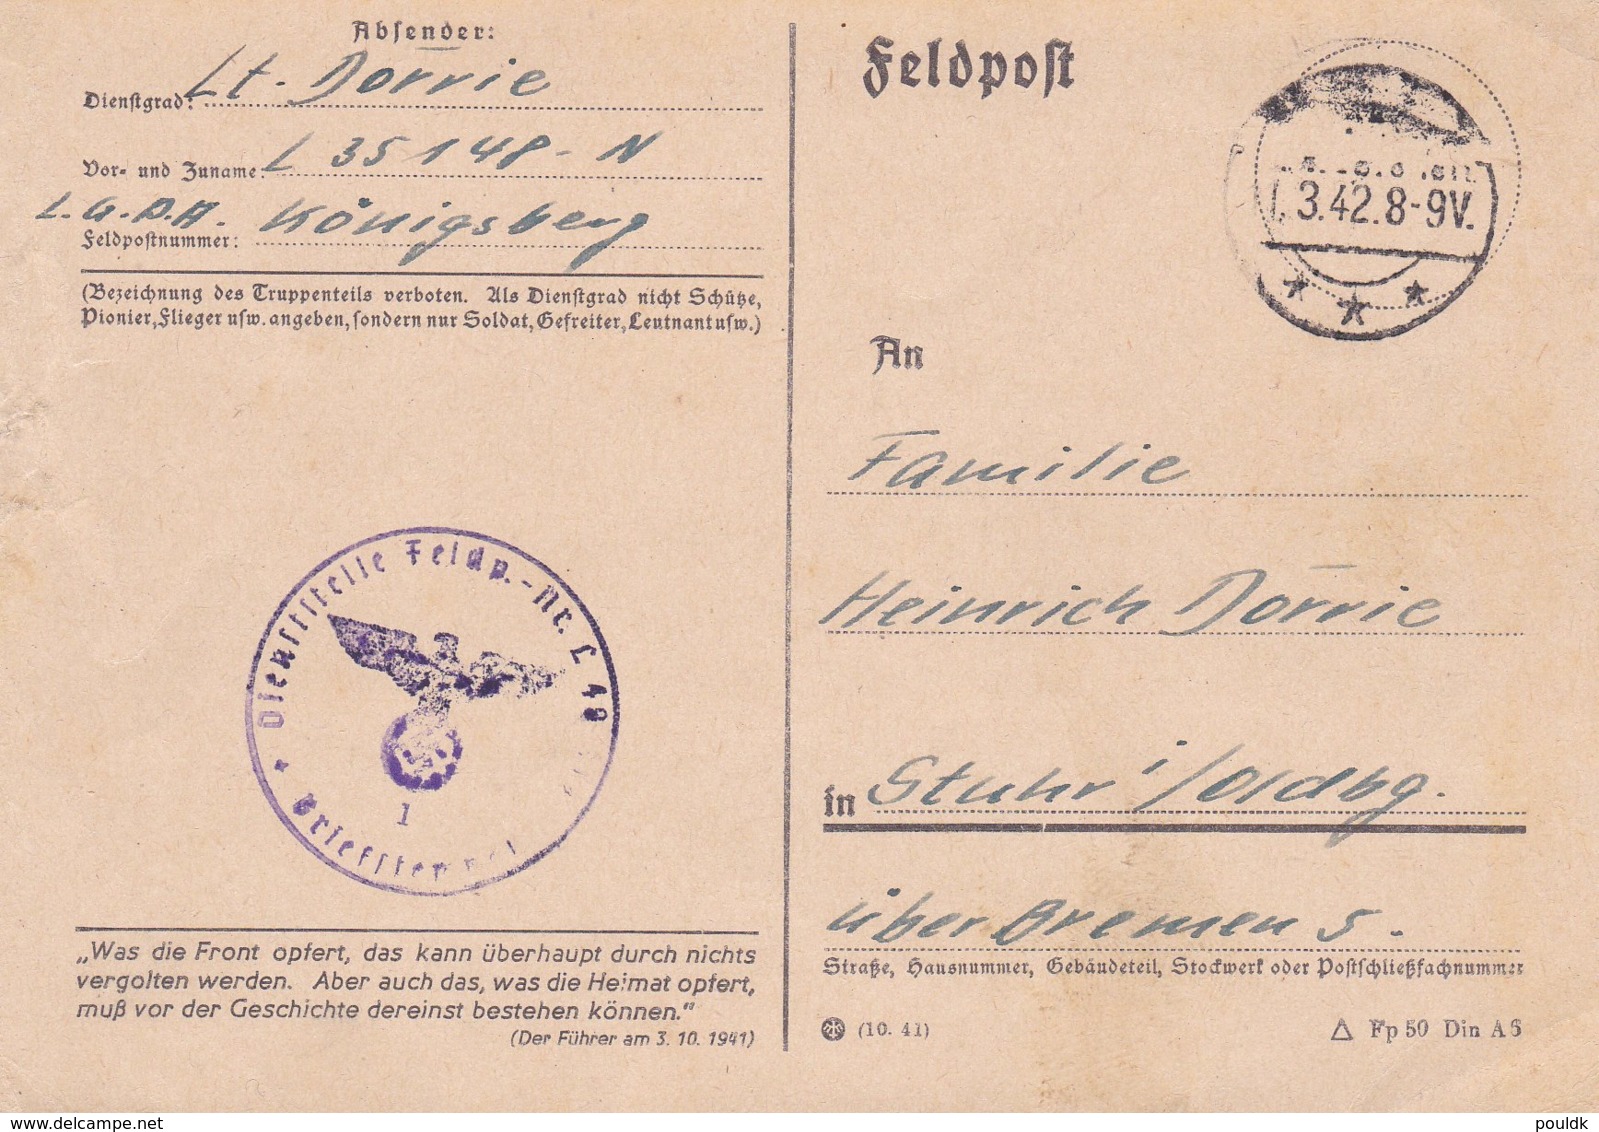 Absender:
Lt. Dörrie
Dienstgrad:
L 35148-N
Vor- und Zuname:
L.G.P.A. Königsberg
Feldpostnummer:
(Bezeichnung des Truppenteils verboten. Als Dienstgrad nicht Schütze,
Pionier, Flieger usw. angeben, sondern nur Soldat, Gefreiter, Leutnant usw.)
Dienststelle Feldp.-Nr. L 49
1
„Was die Front opfert, das kann überhaupt durch nichts
vergolten werden. Aber auch das, was die Heimat opfert,
muß vor der Geschichte dereinst bestehen können."
(Der Führer am 3. 10. 1941)
Feldpost
3.42.8-9V.
An
Familie
Heinrich Dörrie
in Stuhr i/Oldbg.
über Bremen 5.
Straße, Hausnummer, Gebäudeteil, Stockwerk oder Postschließfachnummer
(10. 41)
Fp 50 Din A6
delcampe.net
pouldk